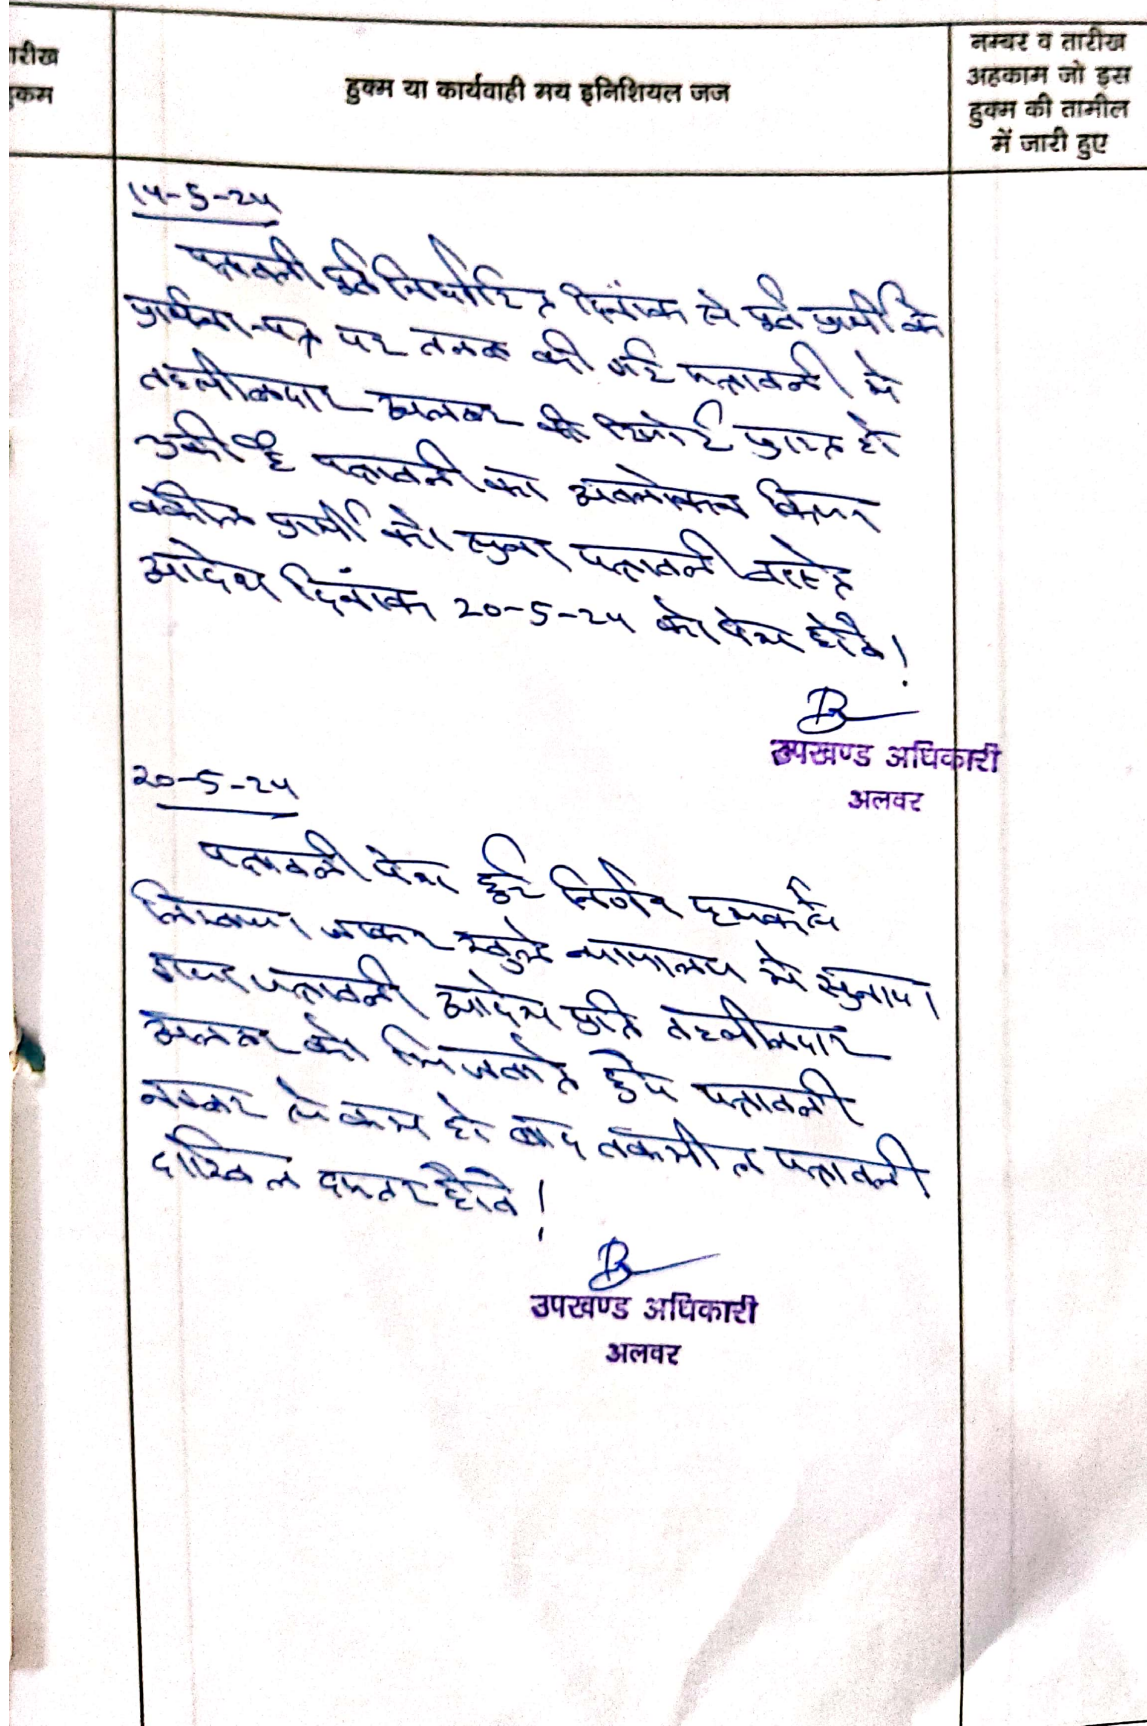 तारीख
हुकम
हुक्म या कार्यवाही मय इनिशियल जज
नम्बर व तारीख
अहकाम जो इस
हुक्म की तामील
में जारी हुए
पत्रावली पूर्व निर्धारित दिनांक से पूर्व प्रार्थी के
प्रार्थना-पत्र पर तलब की गई पत्रावली मे
तहसीलदार अलवर की रिपोर्ट प्राप्त हो
चुकी है पत्रावली का अवलोकन किया
वकील प्रार्थी को सुना पत्रावली वास्ते
आदेश दिनांक को पेश होवे!
उपखण्ड अधिकारी
अलवर
पत्रावली पेश हुई निर्णय पृथक से
लिखाया जाकर खुले न्यायालय मे सुनाया
गया पत्रावली आदेश प्रति तहसीलदार
अलवर को हुये पत्रावली
नम्बर से कम हो बाद तकमील पत्रावली
दाखिल दफ्तर होवे!
उपखण्ड अधिकारी
अलवर